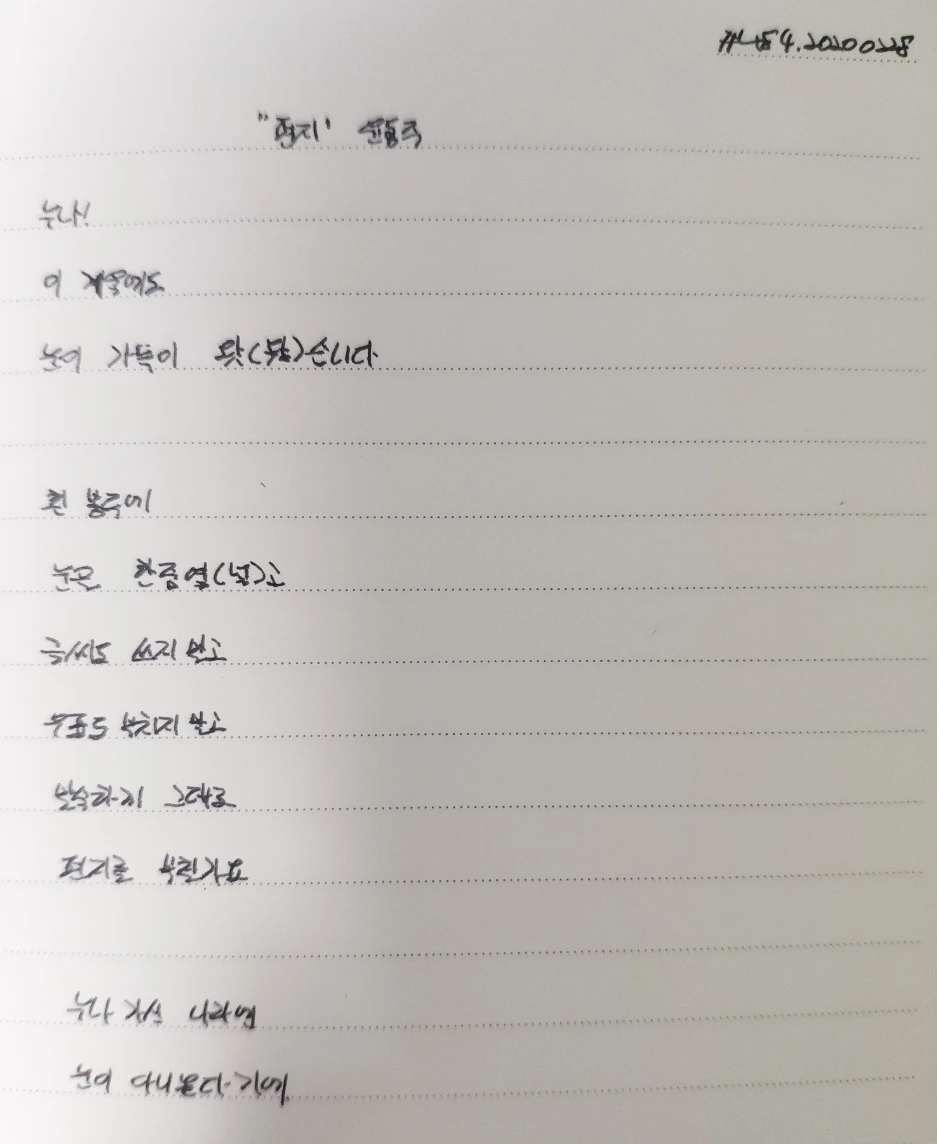 "편지' 윤동주
누나!
이 겨울에도
눈이 가득이 왓(왔)습니다
흰 봉투에
눈은 한줌옇(넣)고
글씨도 쓰지 말고
우표도 부치지 말고
말숙하게 그대로
편지를 부칠가요
누나 가신 나라엔
눈이 아니온다기에